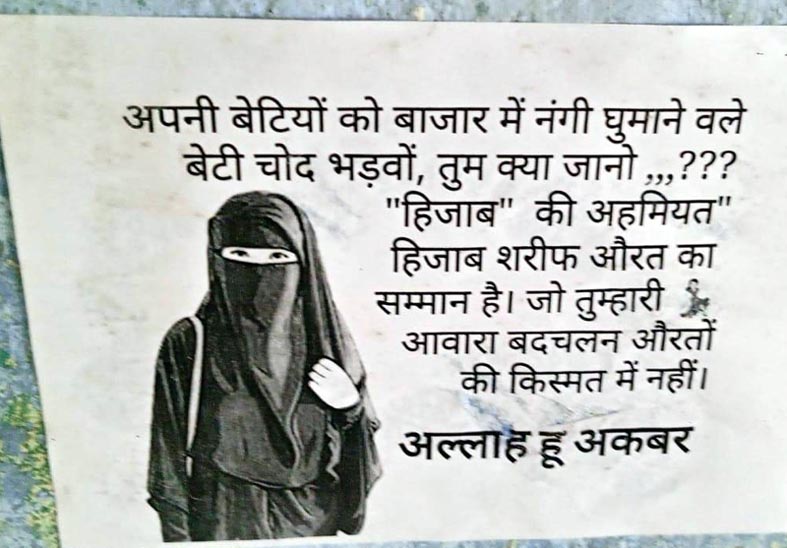 अपनी बेटियों को बाजार में नंगी घुमाने वले
बेटी चोद भड़वों, तुम क्या जानो ,,,???
"हिजाब" की अहमियत"
हिजाब शरीफ औरत का
सम्मान है। जो तुम्हारी
आवारा बदचलन औरतों
की किस्मत में नहीं।
अल्लाह हू अकबर